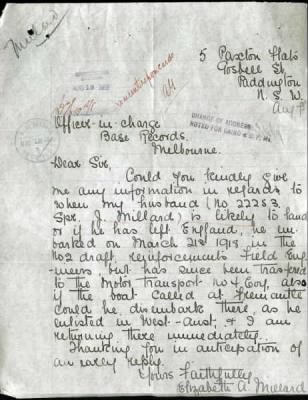 Millard
5 Paxton Flats
Gosbell St
Paddington
N. S. W.
Aug 7
CHANGE OF ADDRESS
NOTED FOR
Officer-in-charge
Base Records.
Melbourne.
Dear Sir,
Could you kindly give
me any information in regards to
when my husband (No 22253,
Spr. J. Millard) is likely to land
or if he has left England, he em
barked on March 21st 1918 in the
No 2 draft, reinforcements Field Eng-
ineers, but has since been transferred
to the Motor Transport No 4 Coy, also
if the boat called at Fremantle
could he, disembark there, as he
enlisted in West-Aust, & I am
returning there immediately.
Thanking you in anticipation of
an early reply.
Yours Faithfully
Elizabeth A. Millard